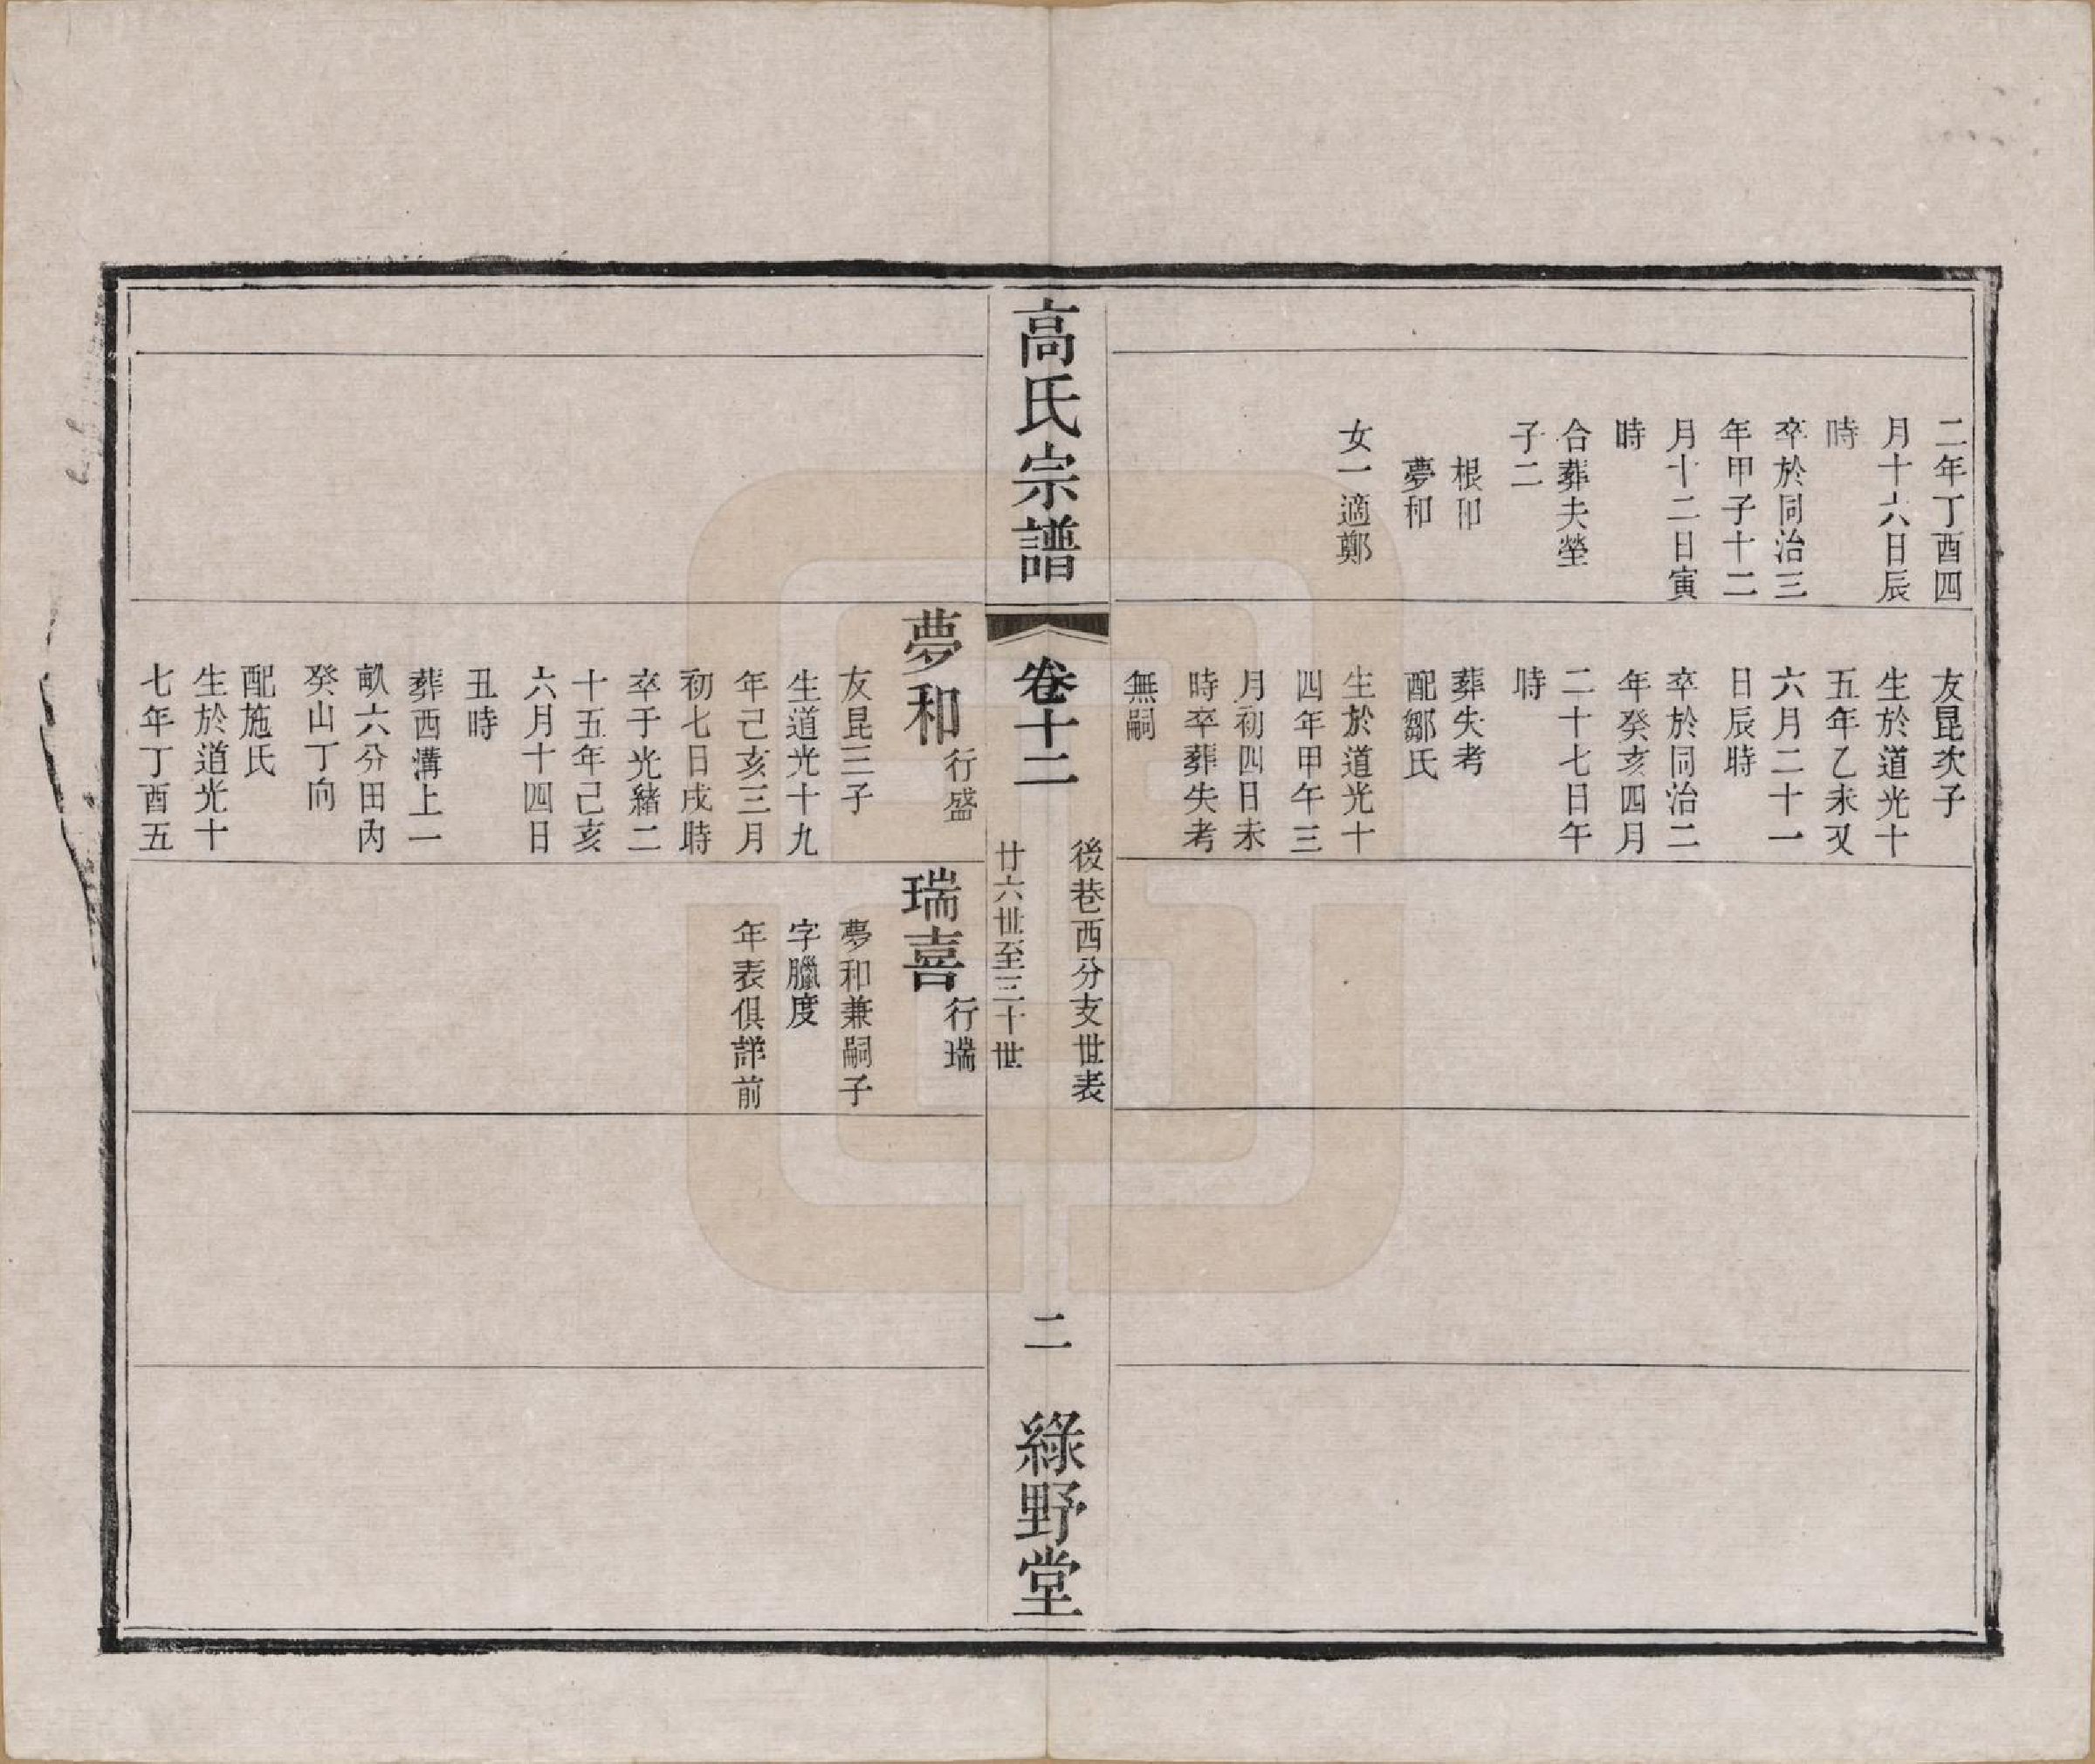 二年丁酉四
月十六日辰
時
卒於同治三
年甲子十二
月十二日寅
時
合葬夫塋
子二
根和
夢和
女一適鄭
友昆次子
生於道光十
五年乙未又
六月二十一
日辰時
卒於同治二
年癸亥四月
二十七日午
時
葬失考
配鄒氏
生於道光十
四年甲午三
月初四日未
時卒葬失考
無嗣
高氏宗譜
卷十二
後巷西分支世表
廿六世至三十世
二
綠野堂
夢和 行盛
友昆三子
生道光十九
年己亥三月
初七日戌時
卒于光緒二
十五年己亥
六月十四日
丑時
葬西溝上一
畝六分田內
癸山丁向
配施氏
生於道光十
七年丁酉五
瑞喜 行瑞
夢和兼嗣子
字臘度
年表俱詳前